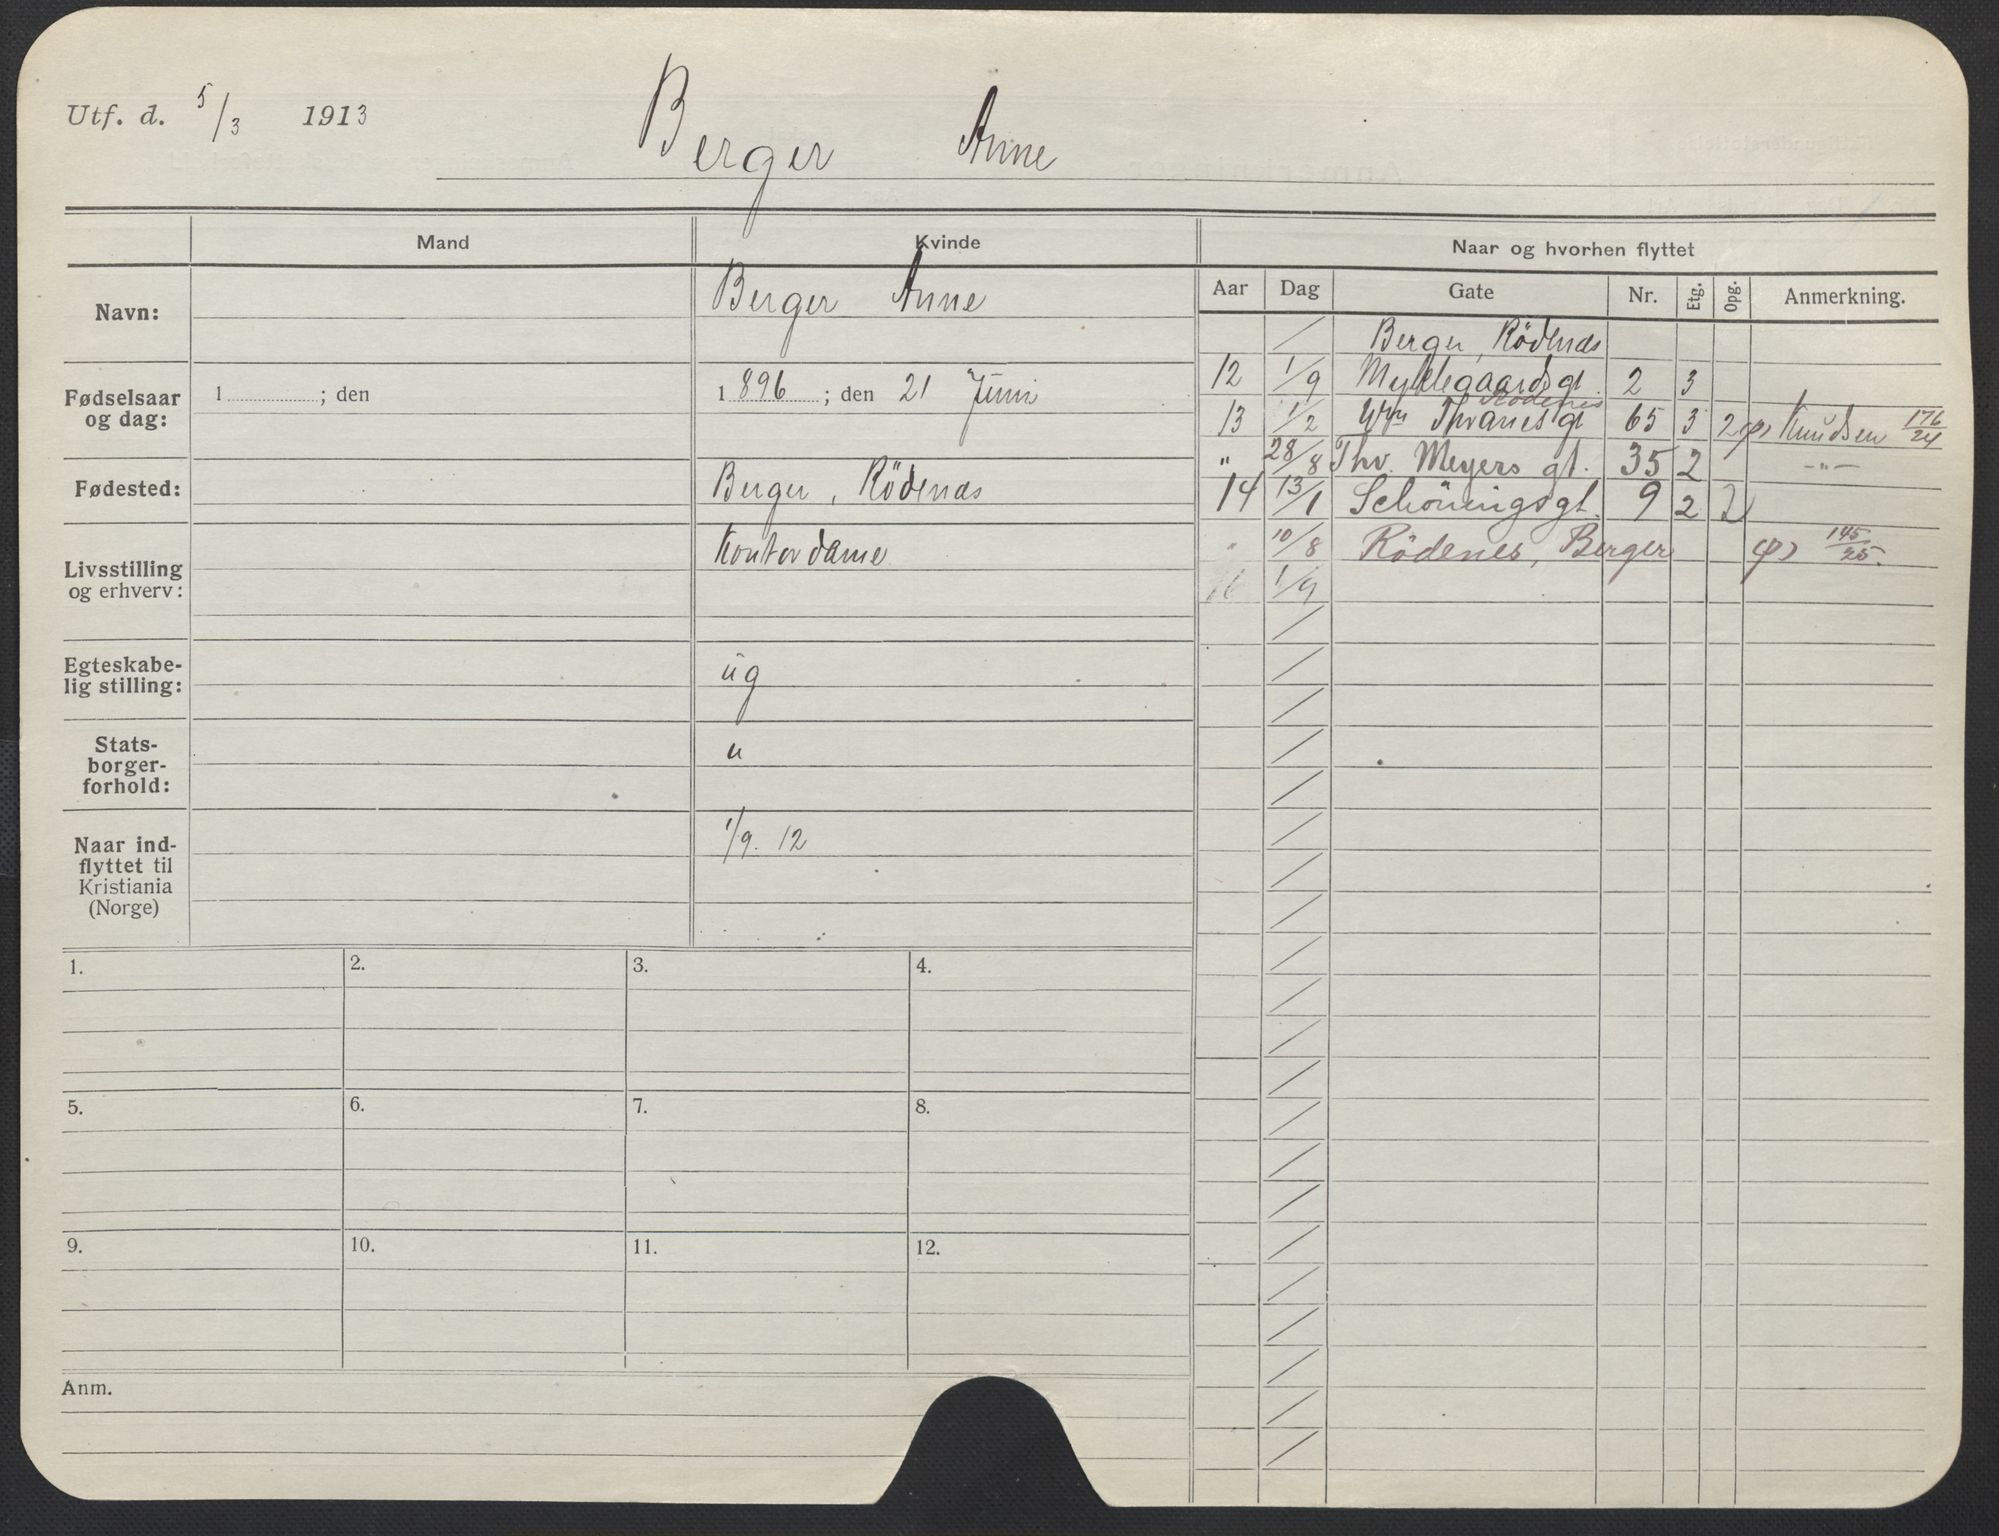 Utf. d. 5/3 1913
Berger Anne
Mand
Kvinde
Naar og hvorhen flyttet
Aar Dag Gate Nr. Etg. Opg. Anmerkning.
Navn:
Berger Anne
Fødselsaar
og dag:
1 ; den
1 896 ; den 21 Juni
Fødested:
Berger, Rödenæs
Livsstilling
og erhverv:
Kontordame
Egteskabe-
lig stilling:
ug
Stats-
borger-
forhold:
u
Naar ind-
flyttet til
Kristiania
(Norge)
1/9. 12
Berger, Rödenæs
12 1/9 Myklegaardsgt. 2 3
Rödenes
13 1/2 Wm Thranesgt 65 3 2 Knudsen 176/24
" 28/8 Thv. Meyers gt. 35 2 -"-
14 13/1 Schöningsgt. 9 2 2
" 10/8 Rödenes, Berger 145/25.
16 1/9
1. 2. 3. 4.
5. 6. 7. 8.
9. 10. 11. 12.
Anm.